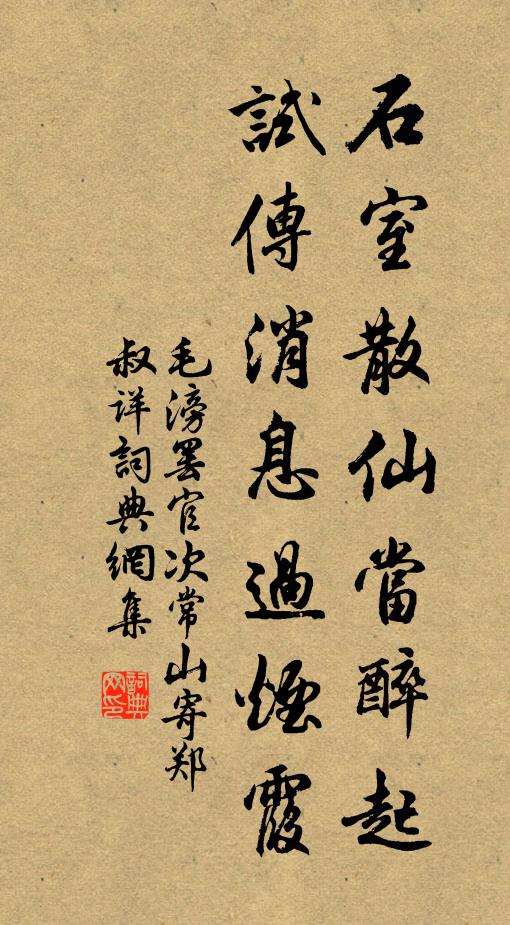 石室散仙當醉起
試傳消息過煙霞
毛滂罢官次常山寄郑
叔详詞典網集
詞典網印